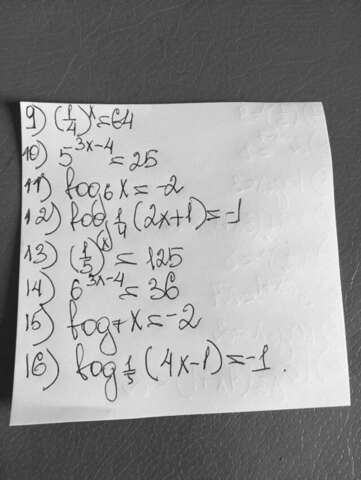 9) (1/4)^x = 64
10) 5^{3x-4} = 25
11) log_6 x = -2
12) log_{1/4} (2x+1) = -1
13) (1/5)^x = 125
14) 6^{3x-4} = 36
15) log_7 x = -2
16) log_{1/5} (4x-1) = -1.